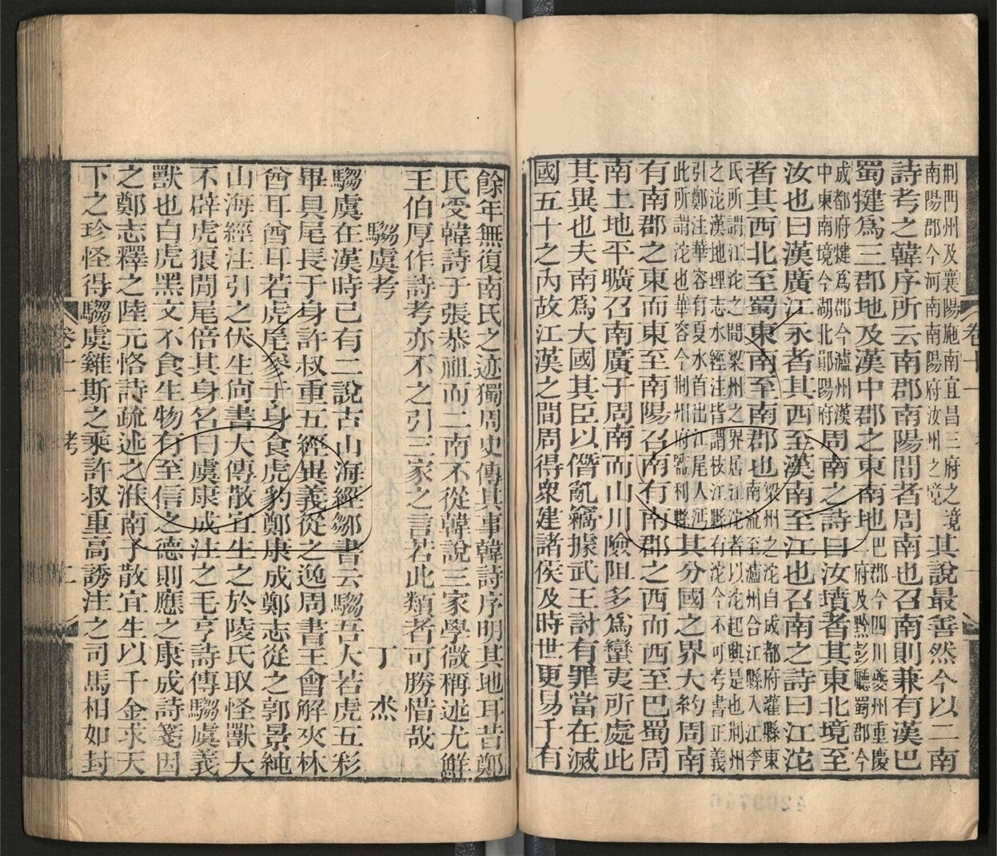 荆門州及襄陽施南宜昌三府之境其說最善然今以二南
南陽郡今河南南陽府汝州之境
詩考之韓序所云南郡南陽間者周南也召南則兼有漢巴
蜀犍爲三郡地及漢中郡之東南地巴郡今四川夔州重慶二府及黔彭廳蜀郡今
成都府犍爲郡今瀘州漢中東南境今湖北鄖陽府周南之詩曰汝墳者其東北境至
汝也曰漢廣江永者其西至漢南至江也召南之詩曰江沱
者其西北至蜀東南至南郡也梁州之沱自成都府灌縣東南流至瀘州合江縣入江李
氏所謂江沱之間梁州之界居江沱者以沱起興是也荆州
之沱漢地理志水經注皆謂枝江縣有沱今不可考書正義
引鄭注華容有夏水首出江尾入沔此所謂沱也華容今荆州府監利縣其分國之界大約周南
有南郡之東而東至南陽召南有南郡之西而西至巴蜀周
南土地平曠召南廣于周南而山川險阻多爲蠻夷所處此
其異也夫南爲大國其臣以僭亂竊據武王討有罪當在滅
國五十之內故江漢之間周得衆建諸侯及時世更易千有
卷十一 考 一
餘年無復南氏之迹獨周史傳其事韓詩序明其地耳昔鄭
氏受韓詩于張恭祖而二南不從韓說三家學微稱述尤鮮
王伯厚作詩考亦不之引三家之言若此類者可勝惜哉
騶虞考 丁杰
騶虞在漢時已有二說古山海經鄒書云騶吾大若虎五彩
畢具尾長于身許叔重五經異義從之逸周書王會解央林
酋耳酋耳若虎尾參于身食虎豹鄭康成鄭志從之郭景純
山海經注引之伏生尙書大傳散宜生之於陵氏取怪獸大
不辟虎狼間尾倍其身名曰虞康成注之毛亨詩傳騶虞義
獸也白虎黑文不食生物有至信之德則應之康成詩箋因
之鄭志釋之陸元恪詩疏述之淮南子散宜生以千金求天
下之珍怪得騶虞雞斯之乘許叔重高誘注之司馬相如封
卷十一 考 二